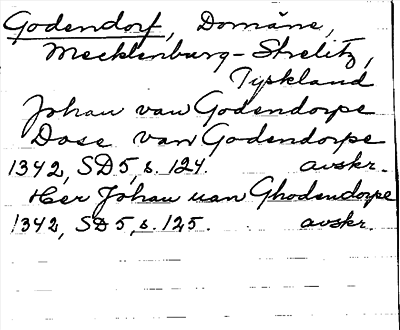 Godendorf, Domäne,
Mecklenburg-Strelitz,
Tyskland
Johan van Godendorpe
Dose van Godendorpe
1342, SD 5, s. 124. avskr.
Her Johan uan Ghodendorpe
1342, SD 5, s. 125. avskr.